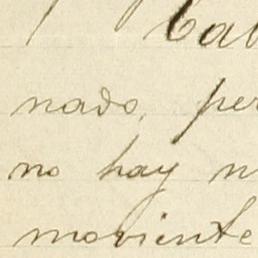 nado, per
no hay n
moviente